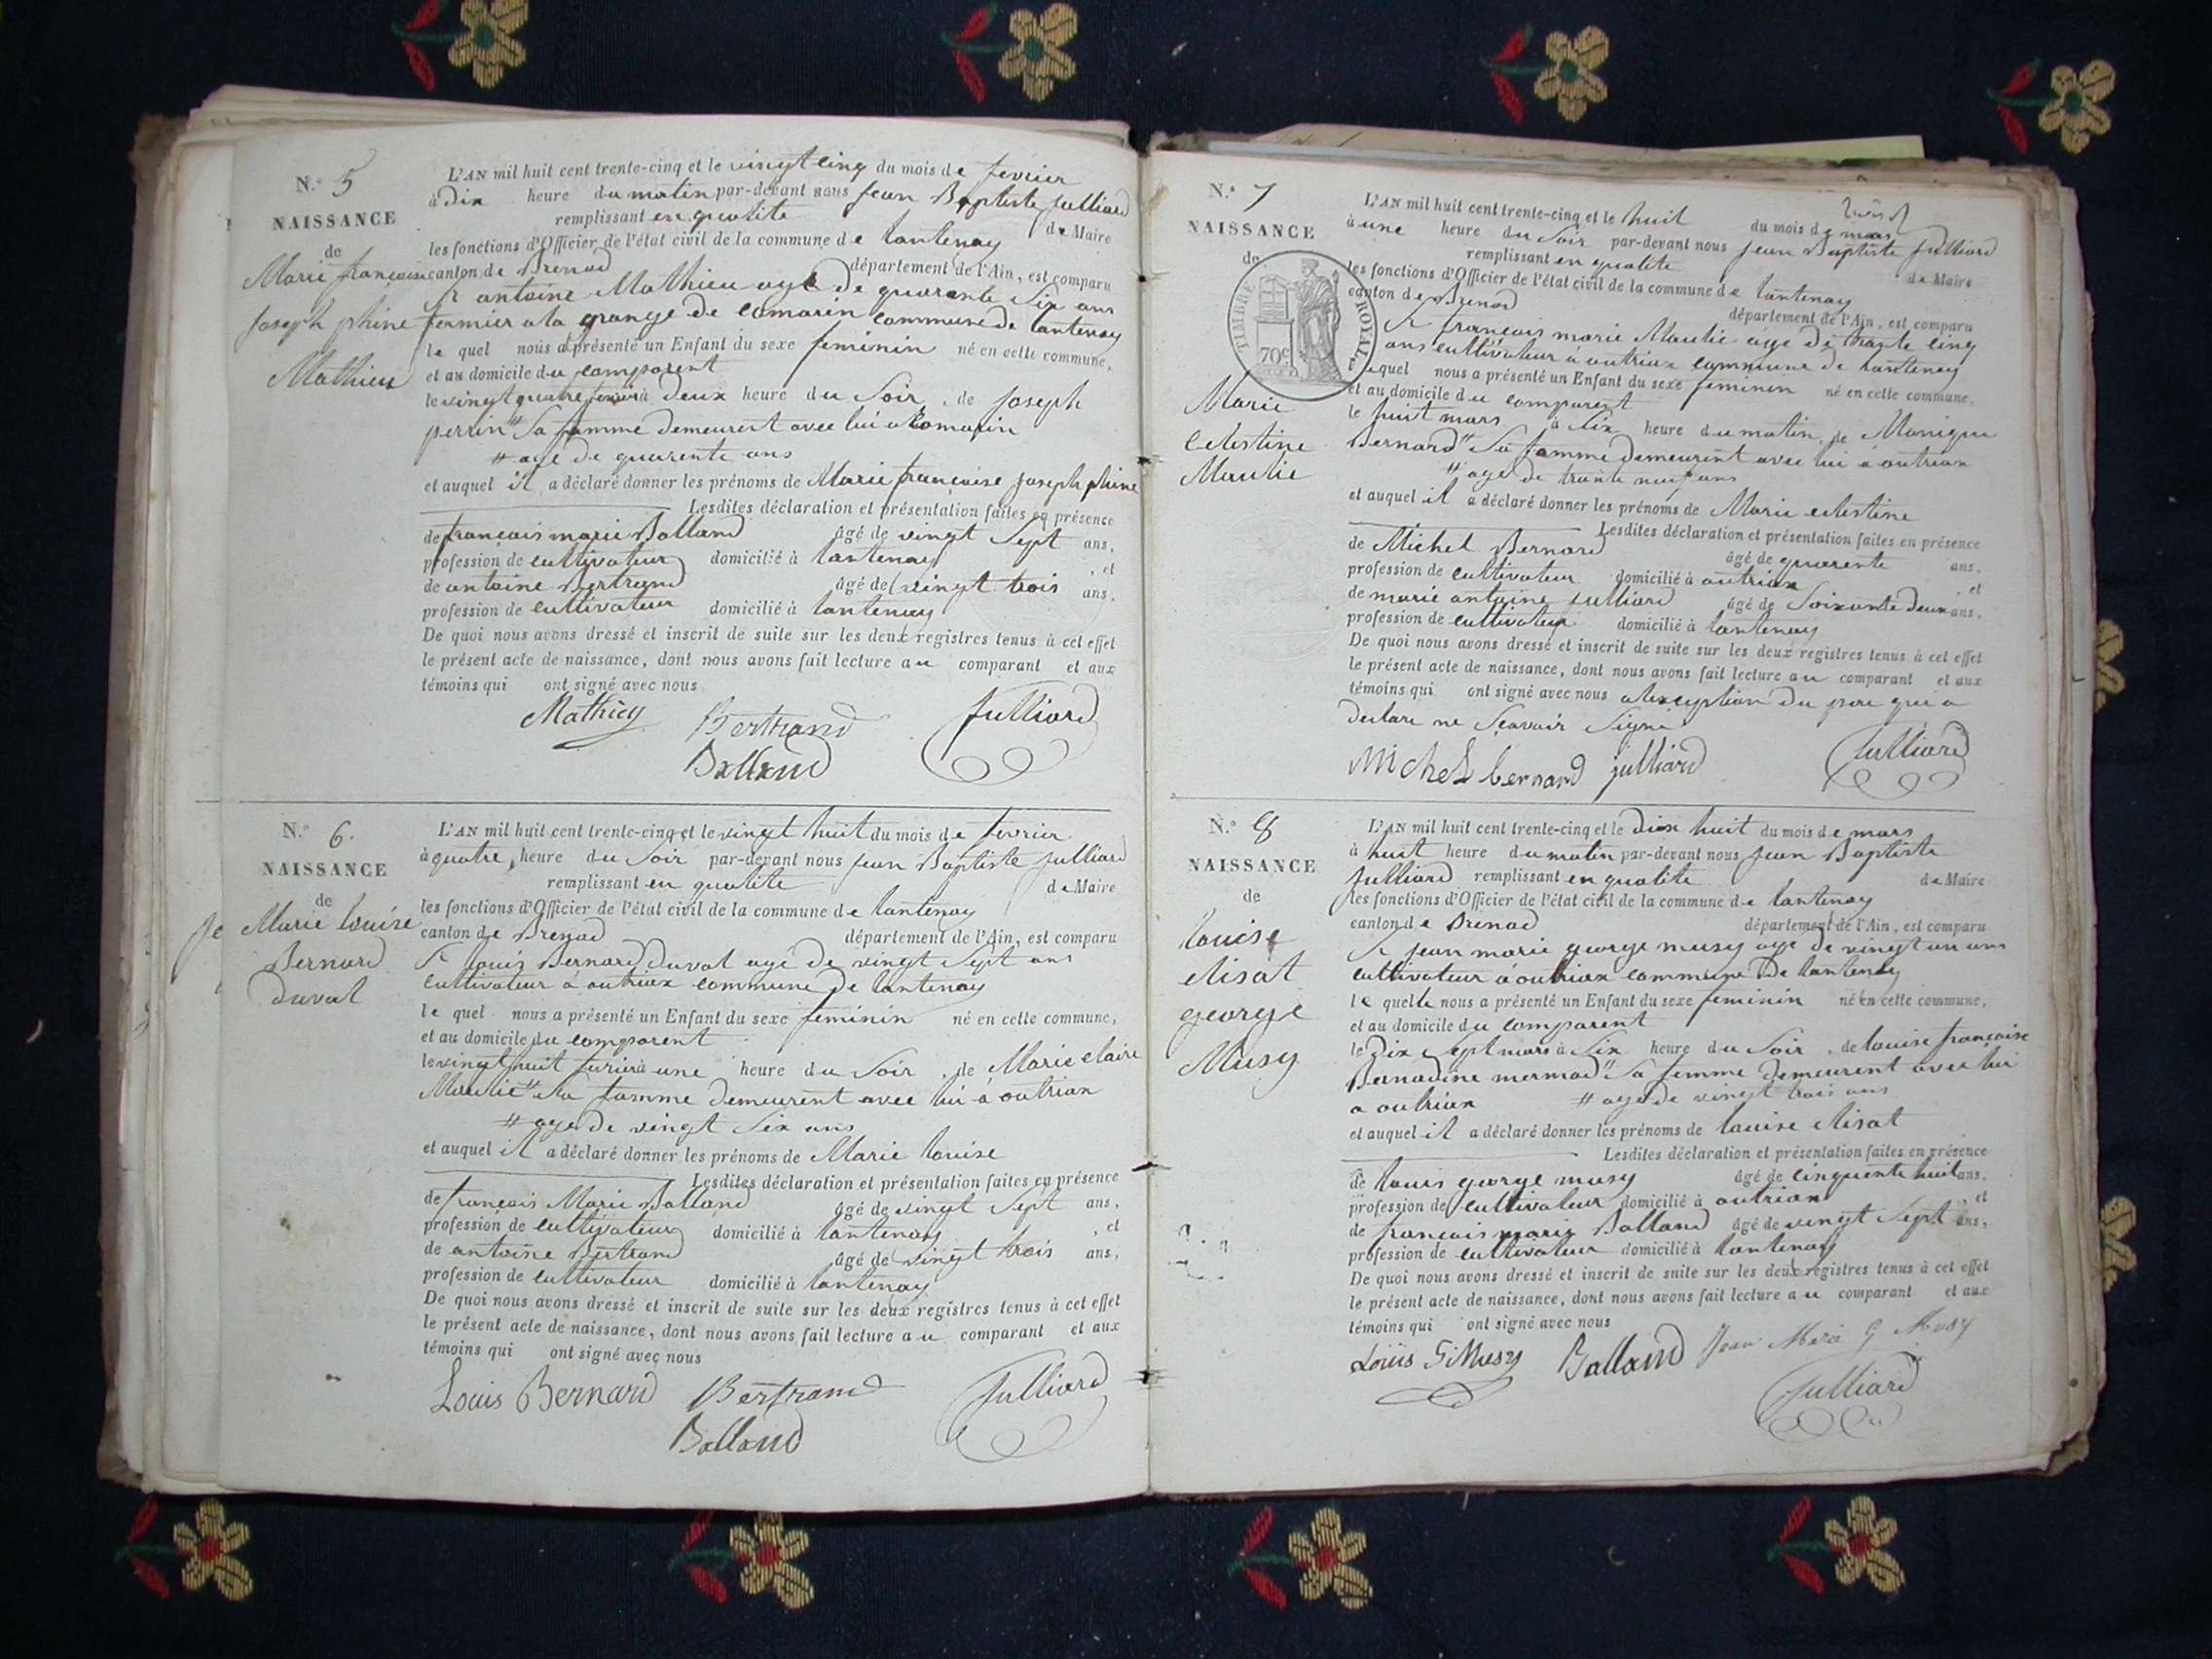 N.º 5
NAISSANCE
de
Marie françoise
Joseph phine
Mathieu
L'AN mil huit cent trente-cinq et le vingt cinq du mois de fevrier
à dix heure du matin par-devant nous Jean Baptiste Julliard
remplissant en qualite de Maire
les fonctions d'Officier de l'état civil de la commune de lantenay
canton de Brenod département de l'Ain, est comparu
S.r antoine Mathieu age de quarente Six ans
fermier a la grange de comarin commune de lantenay
le quel nous a présenté un Enfant du sexe feminin né en cette commune,
et au domicile du comparent
le vingt quatre fevrier à deux heure du Soir, de Joseph
perrin " Sa famme demeurent avec lui a Comarin
" age de quarente ans
et auquel il a déclaré donner les prénoms de Marie françoise Joseph phine
Lesdites déclaration et présentation faites en présence
de francois marie Balland âgé de vingt Sept ans,
profession de cultivateur domicilié à lantenay, et
de antoine Bertrand âgé de vingt trois ans,
profession de cultivateur domicilié à lantenay
De quoi nous avons dressé et inscrit de suite sur les deux registres tenus à cet effet
le présent acte de naissance, dont nous avons fait lecture au comparant et aux
témoins qui ont signé avec nous
Mathieu Bertrand Julliard
Balland
N.º 6.
NAISSANCE
de
Marie louise
Bernard
duval
L'AN mil huit cent trente-cinq et le vingt huit du mois de fevrier
à quatre heure du Soir par-devant nous Jean Baptiste Julliard
remplissant en qualite de Maire
les fonctions d'Officier de l'état civil de la commune de lantenay
canton de Brenod département de l'Ain, est comparu
S.r louis Bernard duval agé de vingt Sept ans
cultivateur à outriax commune de lantenay
le quel nous a présenté un Enfant du sexe feminin né en cette commune,
et au domicile du comparent
le vingt huit fevrier à une heure du Soir, de Marie claire
Maulie " Sa famme demeurent avec lui à outriax
" age de vingt Six ans
et auquel il a déclaré donner les prénoms de Marie louise
Lesdites déclaration et présentation faites en présence
de francois Marie Balland âgé de vingt Sept ans,
profession de cultivateur domicilié à lantenay, et
de antoine Bertrand âgé de vingt trois ans,
profession de cultivateur domicilié à lantenay
De quoi nous avons dressé et inscrit de suite sur les deux registres tenus à cet effet
le présent acte de naissance, dont nous avons fait lecture au comparant et aux
témoins qui ont signé avec nous
Louis Bernard Bertrand Julliard
Balland
N.º 7
NAISSANCE
de
TIMBRE ROYAL
70c
Marie
Celestine
Maulie
L'AN mil huit cent trente-cinq et le huit du mois de mars
à une heure du Soir par-devant nous Jean Baptiste Julliard
remplissant en qualite de Maire
les fonctions d'Officier de l'état civil de la commune de lantenay
canton de Brenod département de l'Ain, est comparu
S.r francois marie Maulie age de trante cinq
ans cultivateur à outriax commune de lantenay
lequel nous a présenté un Enfant du sexe feminin né en cette commune,
et au domicile du comparent
le huit mars à Six heure du matin, de Monique
Bernard " Sa famme demeurent avec lui a outriax
" age de trante neuf ans
et auquel il a déclaré donner les prénoms de Marie celestine
Lesdites déclaration et présentation faites en présence
de Michel Bernard âgé de quarente ans,
profession de cultivateur domicilié à outriax, et
de marie antoine Julliard âgé de Soixante deux ans,
profession de cultivateur domicilié à lantenay
De quoi nous avons dressé et inscrit de suite sur les deux registres tenus à cet effet
le présent acte de naissance, dont nous avons fait lecture au comparant et aux
témoins qui ont signé avec nous a lexception du pere qui a
declare ne Scavoir Signe
Michel bernard julliard Julliard
N.º 8
NAISSANCE
de
louise
elisat
george
Musy
L'AN mil huit cent trente-cinq et le dix huit du mois de mars
à huit heure du matin par-devant nous Jean Baptiste
Julliard remplissant en qualite de Maire
les fonctions d'Officier de l'état civil de la commune de lantenay
canton de Brenod département de l'Ain, est comparu
S.r Jean marie george musy age de vingt un ans
cultivateur à outriax commune de lantenay
le quelle nous a présenté un Enfant du sexe feminin né en cette commune,
et au domicile du comparent
le dix Sept mars à Six heure du Soir, de louise françoise
Bernadine mermod " Sa femme demeurent avec lui
a outriax " age de vingt trois ans
et auquel il a déclaré donner les prénoms de louise elisat
Lesdites déclaration et présentation faites en présence
de louis george musy âgé de cinquente huit ans,
profession de cultivateur domicilié à outriax, et
de francois marie Balland âgé de vingt Sept ans,
profession de cultivateur domicilié à lantenay
De quoi nous avons dressé et inscrit de suite sur les deux registres tenus à cet effet
le présent acte de naissance, dont nous avons fait lecture au comparant et aux
témoins qui ont signé avec nous
Louis G Musy Balland Jean Marie G Musy
Julliard